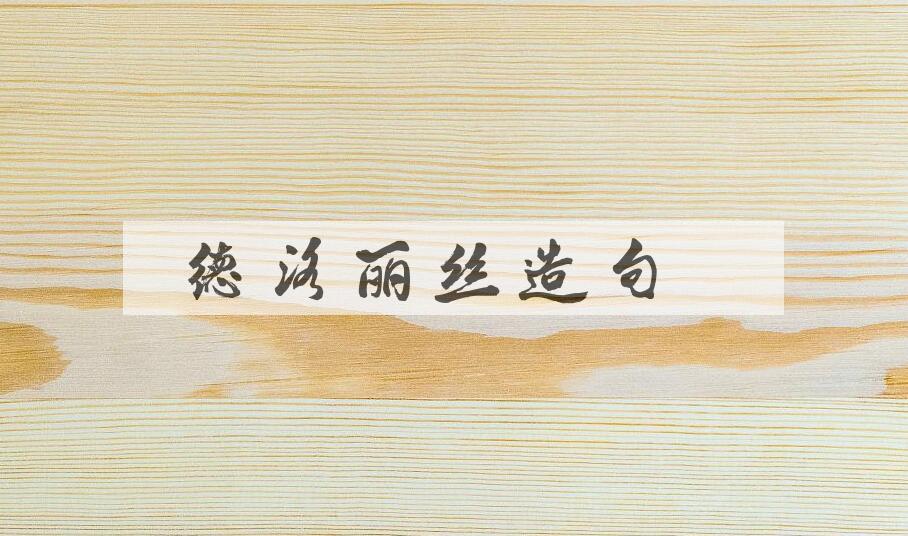 德洛丽丝造句